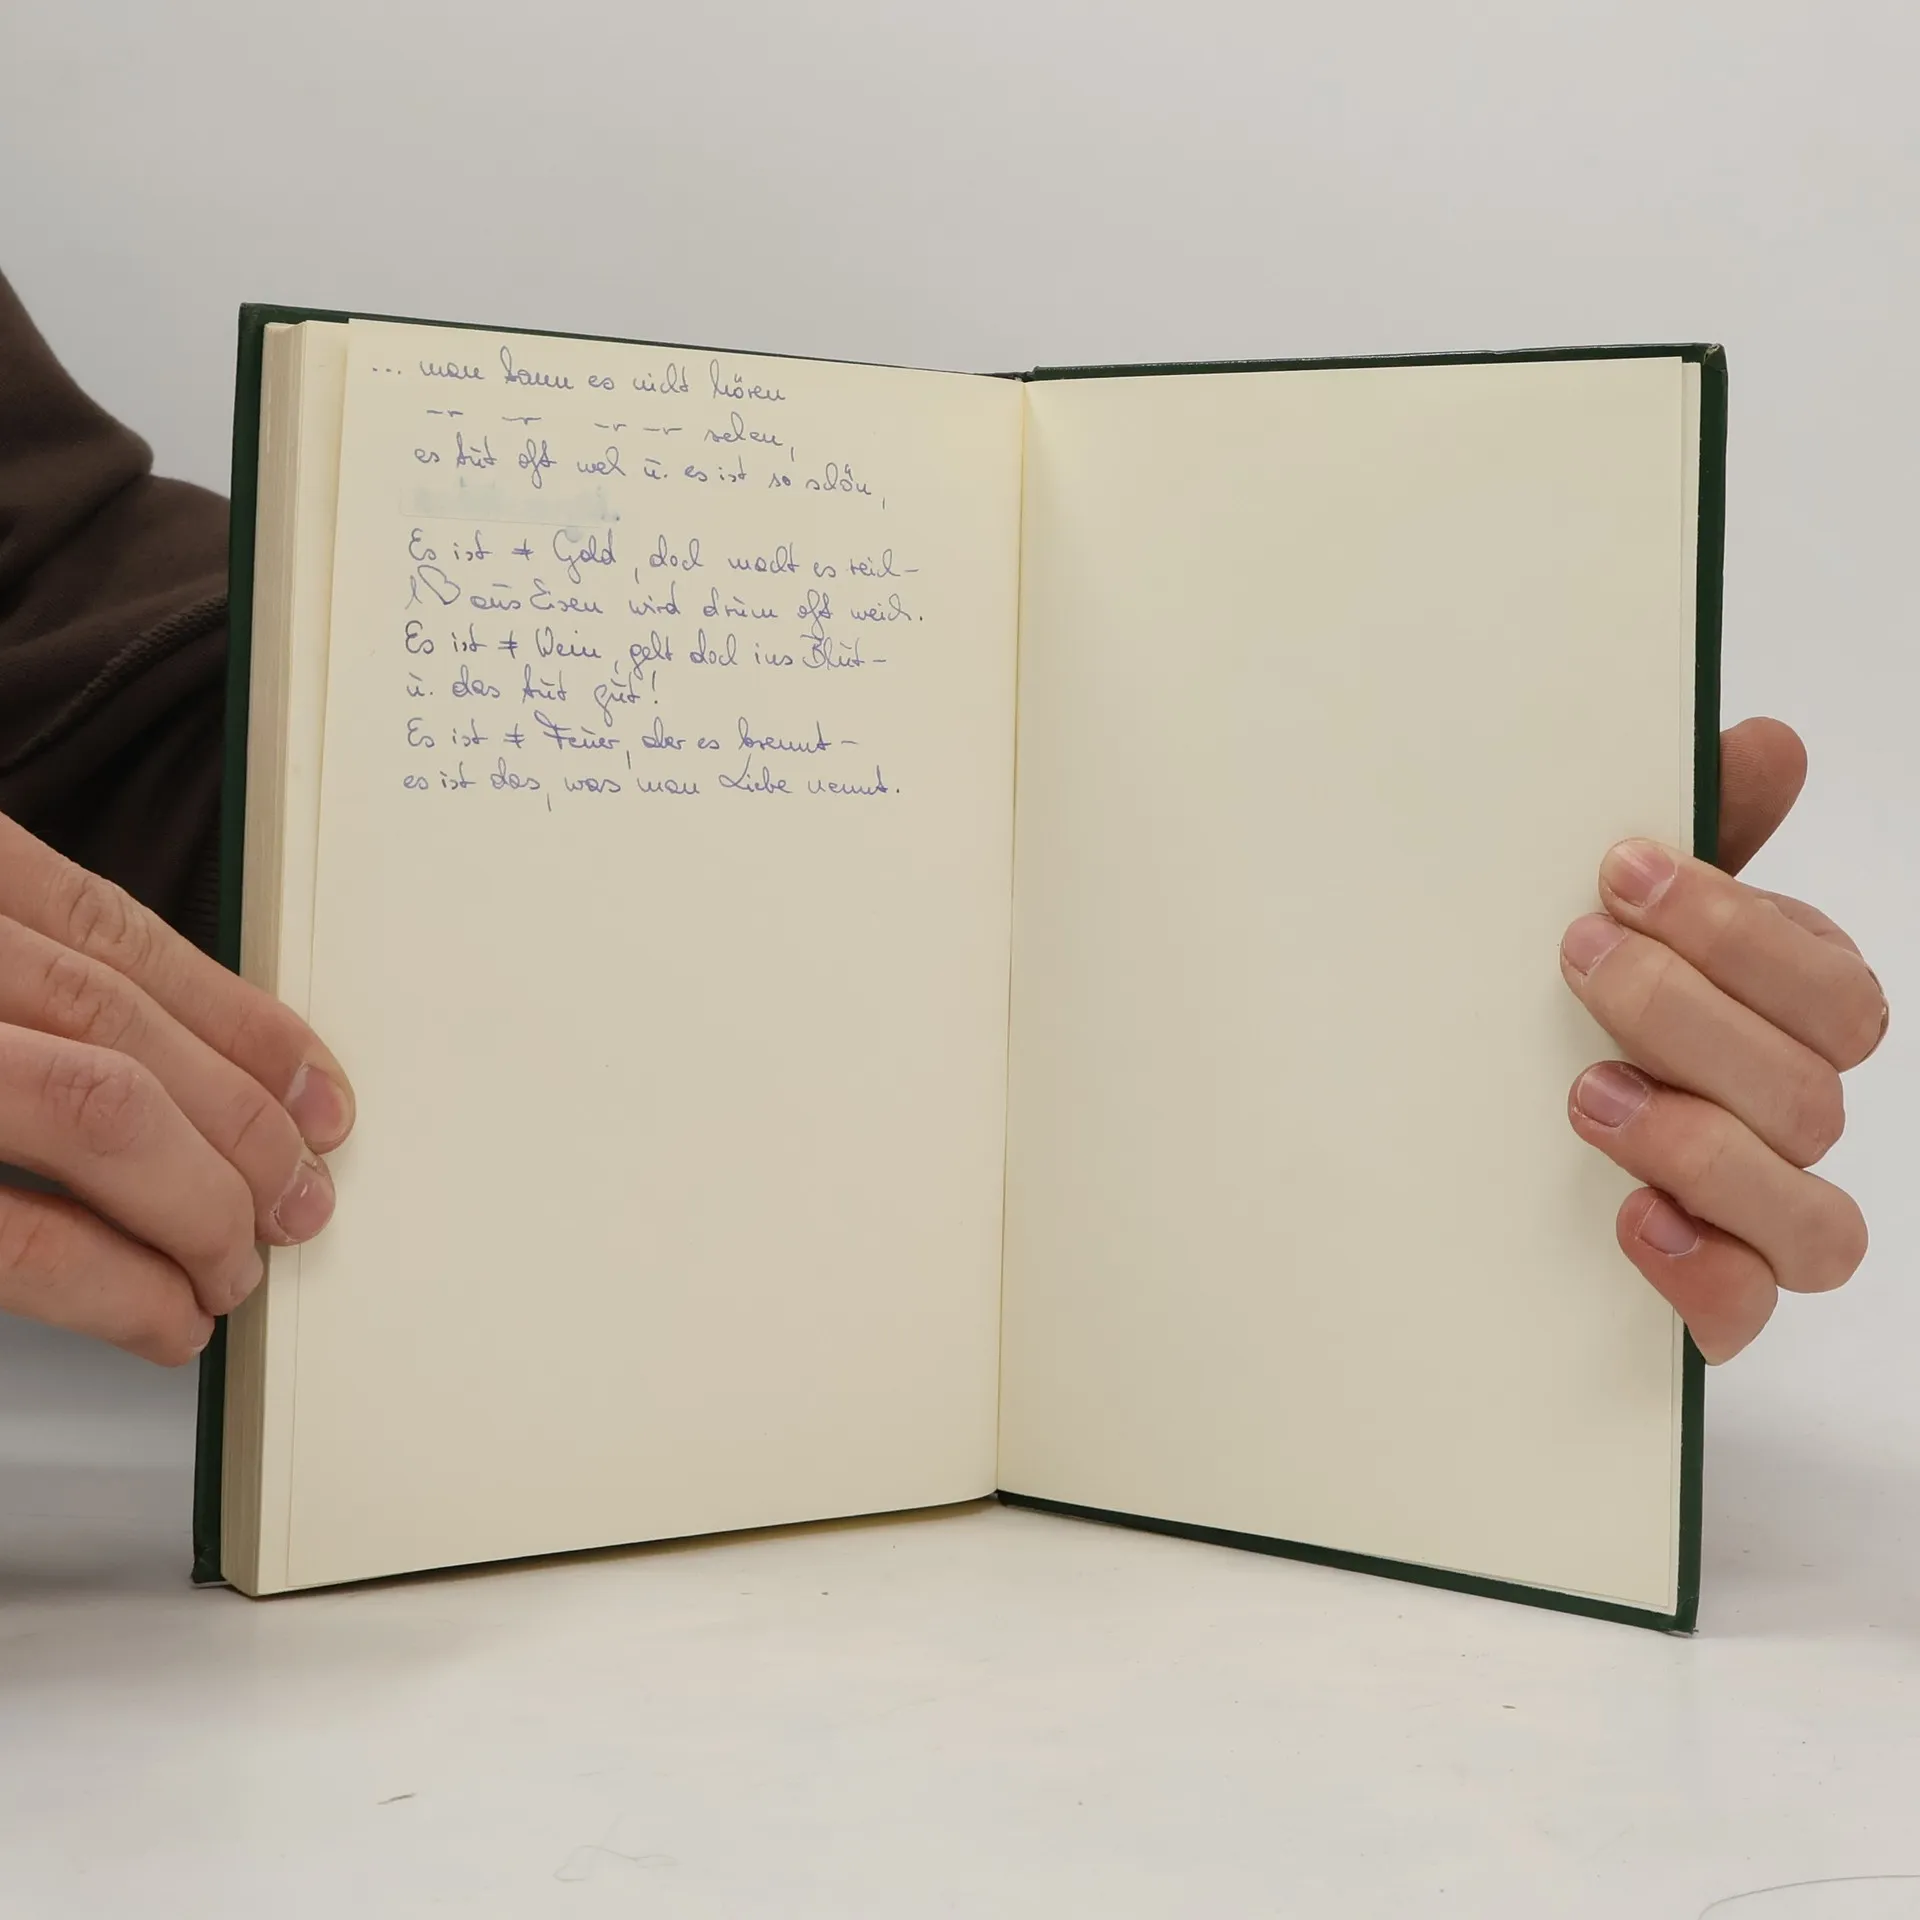 ... man kann es nicht hören
—〃— —〃— —〃— —〃— sehen,
es tut oft weh u. es ist so schön,
Es ist ≠ Gold, doch macht es reich –
1 ♡ aus Eisen wird drum oft weich.
Es ist ≠ Wein, geht doch ins Blut –
u. das tut gut!
Es ist ≠ Feuer, aber es brennt –
es ist das, was man Liebe nennt.